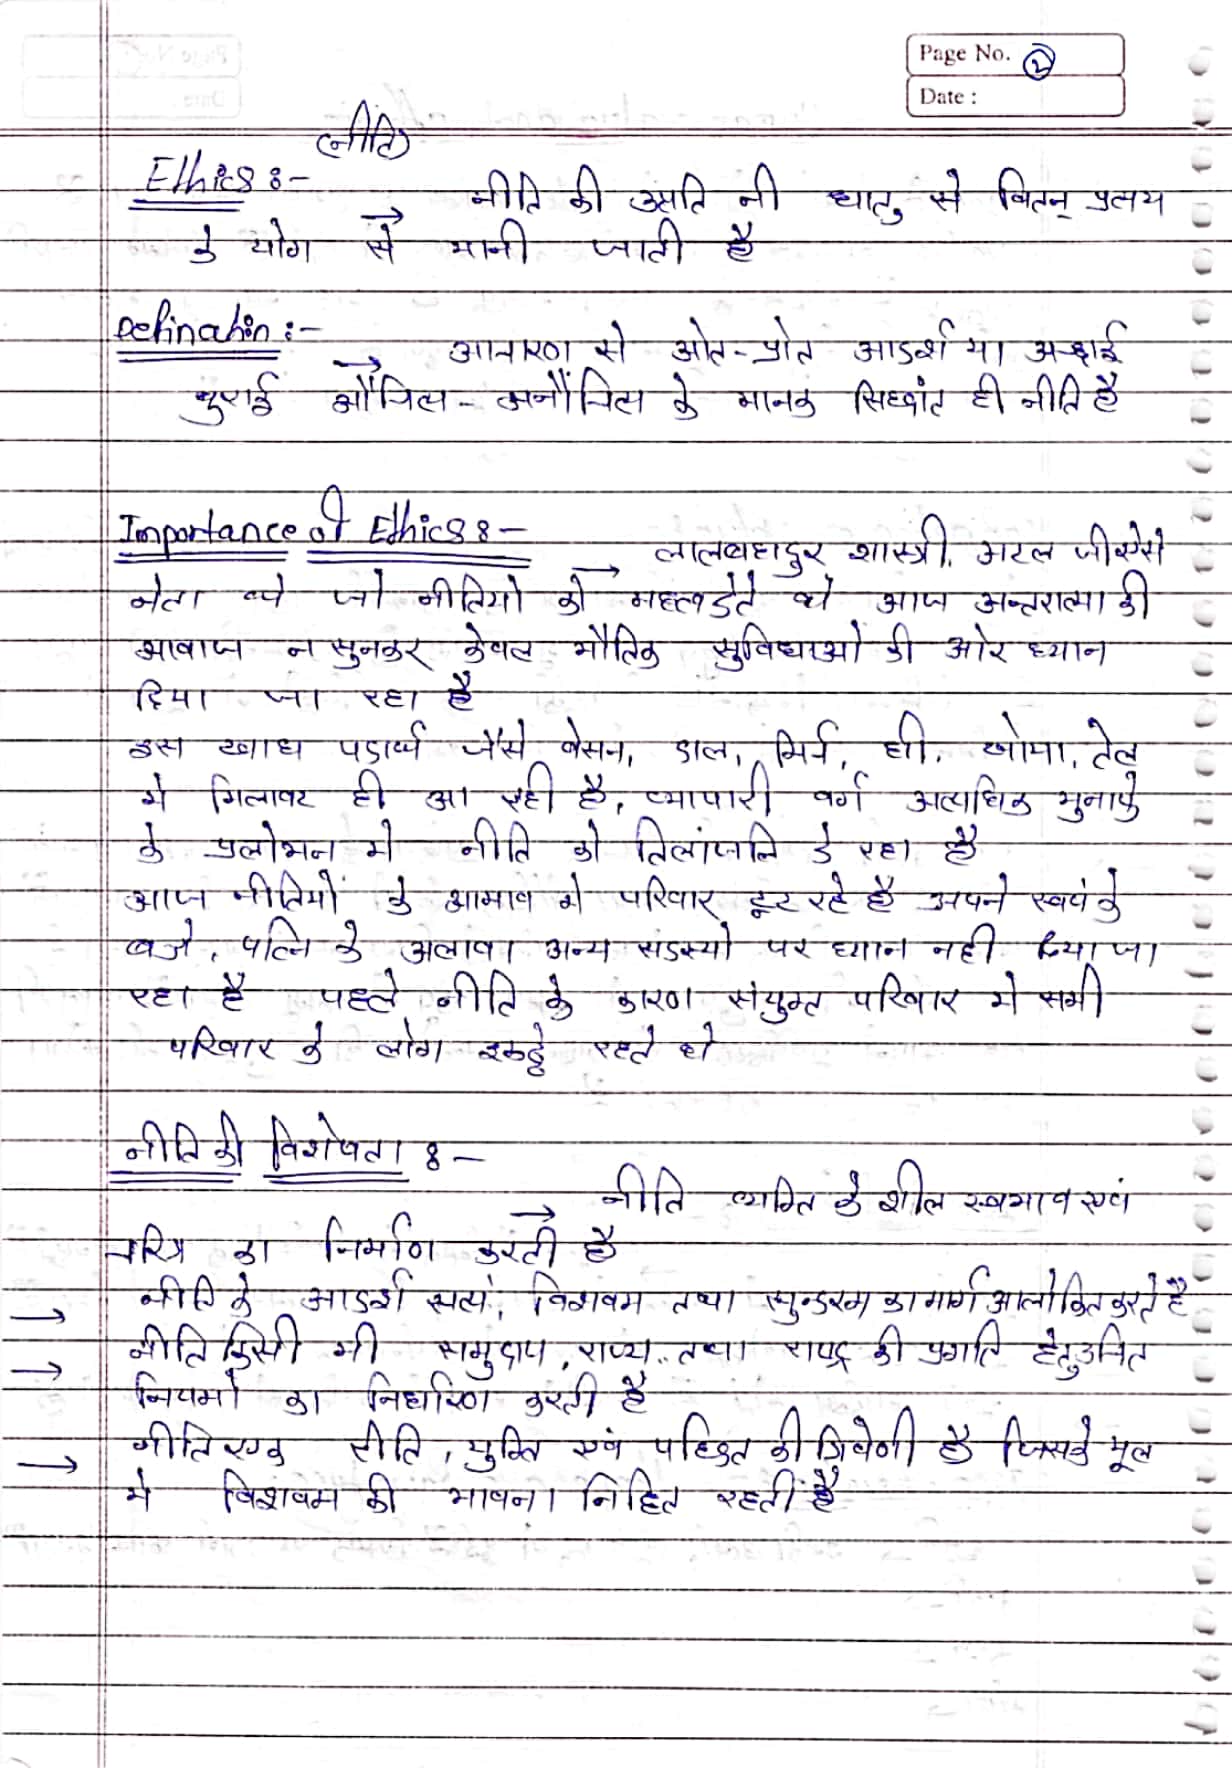 Page No. 2
Date :
(नीति)
Ethics :-
→ नीति की उत्पति नी धातु से क्तिन् प्रत्यय
के योग से मानी जाती है
Defination :-
→ आचारण से ओत-प्रोत आदर्श या अच्छाई
बुराई औचित्य - अनौचित्य के मानक सिध्दांत ही नीति है
Importance of Ethics :-
→ लालबहादुर शास्त्री, अटल जी ऐसे
नेता थे जो नीतियो को महत्व देते थे आज अन्तरात्मा की
आवाज न सुनकर केवल भौतिक सुविधाओं की ओर ध्यान
दिया जा रहा है
इस खाध पदार्थ जैसे बेसन, दाल, मिर्च, घी, खोया, तेल
मे मिलावट ही आ रही है, व्यापारी वर्ग अत्यधिक मुनाफे
के प्रलोभन मे नीति को तिलांजलि दे रहा है
आज नीतियों के आभाव मे परिवार टूट रहे है अपने स्वयं के
बच्चे, पत्नि के अलावा अन्य सदस्यो पर ध्यान नही दिया जा
रहा है पहले नीति के कारण संयुक्त परिवार मे सभी
परिवार के लोग इकट्ठे रहते थे
नीति की विशेषता :-
→ नीति व्यक्ति के शील स्वभाव एवं
चरित्र का निर्माण करती है
→ नीति के आदर्श सत्यं, शिवम तथा सुन्दरम का मार्ग आलोकित करते है
→ नीति किसी भी समुदाय, राज्य, तथा राष्ट्र की प्रगति हेतु उचित
नियमो का निर्धारण करती है
→ नीति एक रीति, युक्ति एवं की त्रिवेणी है जिसके मूल
मे की भावना निहित रहती है